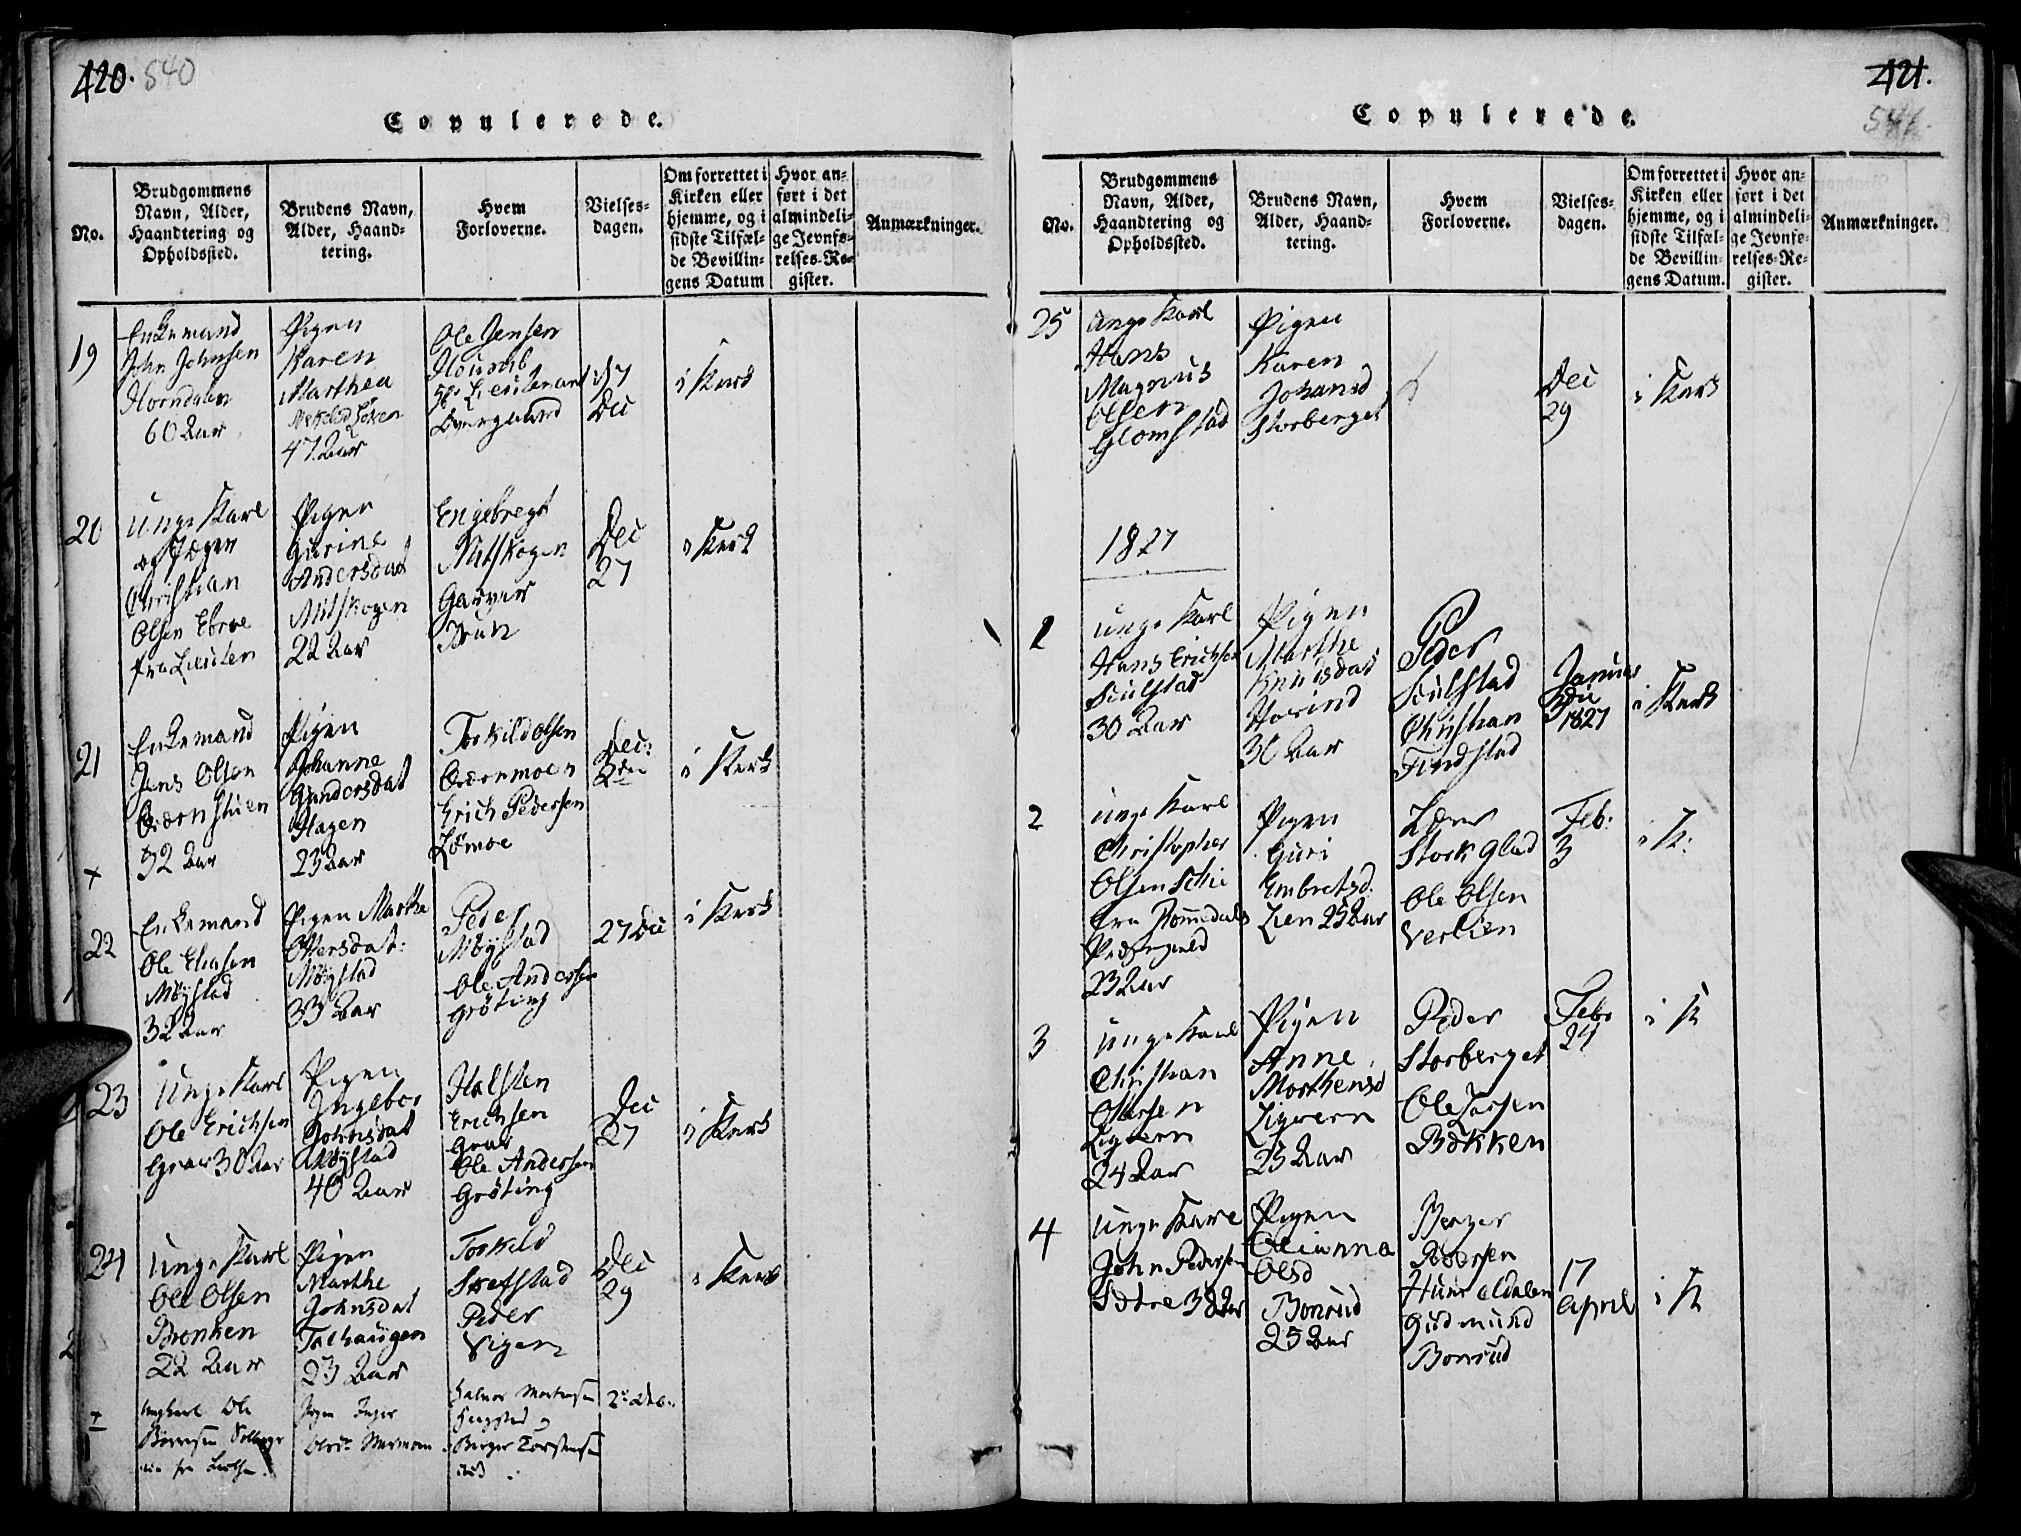 420. 540
Copulerede.
No.
Brudgommens
Navn, Alder,
Haandtering og
Opholdssted.
Brudens Navn,
Alder, Haand-
tering.
Hvem
Forloverne.
Vielses-
dagen.
Om forrettet i
Kirken eller
hjemme, og i
sidste Tilfæl-
de Bevillin-
gens Datum
Hvor an-
ført i det
almindeli-
ge Jevnfø-
relses-Re-
gister.
Anmærkninger.
19
Enkemand
John Johnsen
Horndalen
60 Aar
Pigen
Karen
Marthea
47 Aar
Ole Jensen
Lieutenant
Dec
i Kirk
20
Unge Karl
og Jæger
Christian
Olsen Ebroe
fra Leuten
Pigen
Gurine
Andersdat
Mitskogen
22 Aar
Engebregt
Mitskogen
Garver
Brun
Dec
27
i Kirk
21
Enkemand
Jens Olsen
32 Aar
Pigen
Johanne
Gundersdat
Hagen
23 Aar
Torkild Olsen
Erich Pedersen
Lømoe
Dec:
2den
i Kirk
x
22
Enkemand
Ole Eliasen
Møystad
32 Aar
Pigen Marthe
Ottersdat:
Møystad
33 Aar
Peder
Møystad
Ole Andersen
Grøting
27 Dec
i Kirk
23
Unge Karl
Ole Erichsen
Grav 30 Aar
Pigen
Ingebor
Johnsdat
Møystad
40 Aar
Halsten
Erichsen
Grav
Ole Andersen
Grøting
Dec
27
i Kirk
24
Unge Karl
Ole Olsen
Brenken
22 Aar
Pigen
Marthe
Johnsdat
Tolhaugen
23 Aar
Torkild
Skefstad
Peder
Vigen
Dec
29
i Kirk
+
Ungkarl Ole
Pigen Inger
Halvor Mortensen
Berger Torstensen
421.
541.
Copulerede.
No.
Brudgommens
Navn, Alder,
Haandtering og
Opholdssted.
Brudens Navn,
Alder, Haand-
tering.
Hvem
Forloverne.
Vielses-
dagen.
Om forrettet i
Kirken eller
hjemme, og i
sidste Tilfæl-
de Bevillin-
gens Datum.
Hvor an-
ført i det
almindeli-
ge Jevnfø-
relses-Re-
gister.
Anmærkninger.
25
Unge Karl
Hans
Magnus
Olsen
Glomstad
Pigen
Karen
Johansd
Storberget
Dec
29
i Kirk
1827
1
Unge Karl
Hans Erichsen
Sculstad
30 Aar
Pigen
Marthe
Knudsdat
Horind
30 Aar
Peder
Sculstad
Christian
Findstad
Januar
1827
i Kirk
2
Unge Karl
Christopher
Olsen Schie
fra Rommedals
Præstegield
23 Aar
Pigen
Guri
Embretsd.
Lien 25 Aar
Storkglad
Ole Olsen
Verlien
Feb:
3
i K:
3
Unge Karl
Christian
Ottersen
Ligvern
24 Aar
Pigen
Anne
Morthensd
Ligvern
25 Aar
Peder
Storberget
Ole Larsen
Bekken
Feb
24
i K
4
Unge Karl
John Pedersen
Sætre 38 Aar
Pigen
Olianna
Olsd
Bonrud
25 Aar
Berger
Pedersen
Hunaldalen
Gudmund
Bonrud
17
April
i K